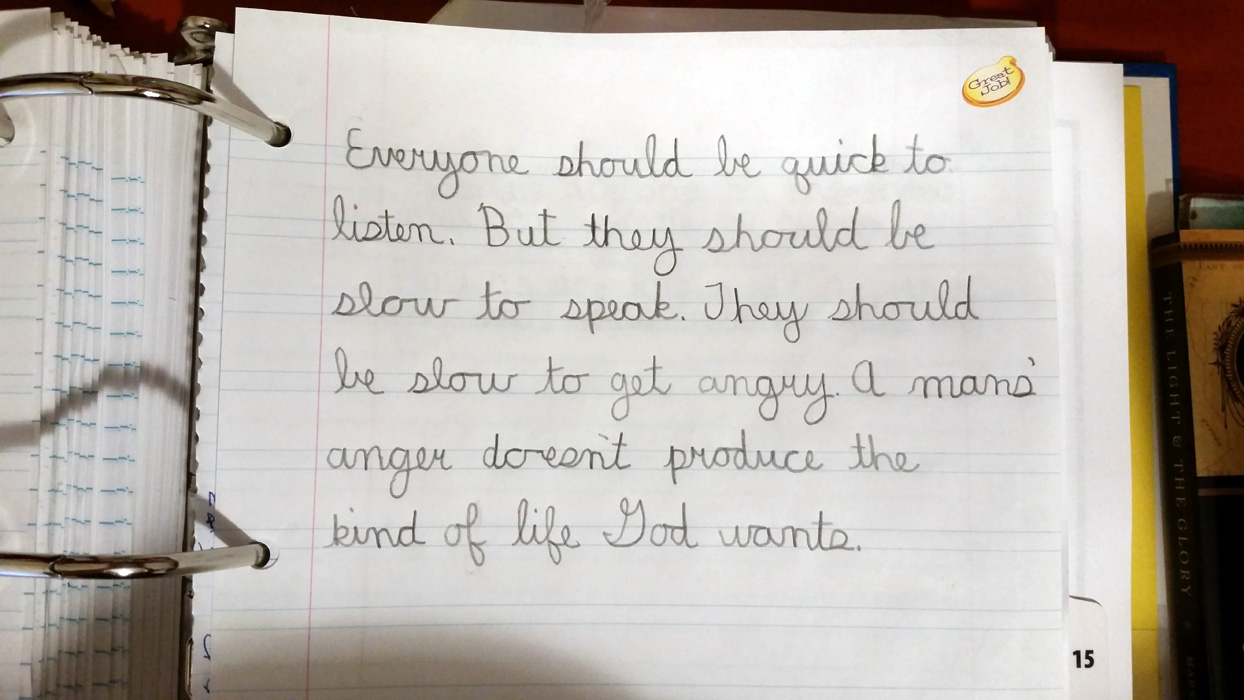 Great
Job!
Everyone should be quick to
listen. But they should be
slow to speak. They should
be slow to get angry. A mans'
anger doesn't produce the
kind of life God wants.
15
THE LIGHT & THE GLORY